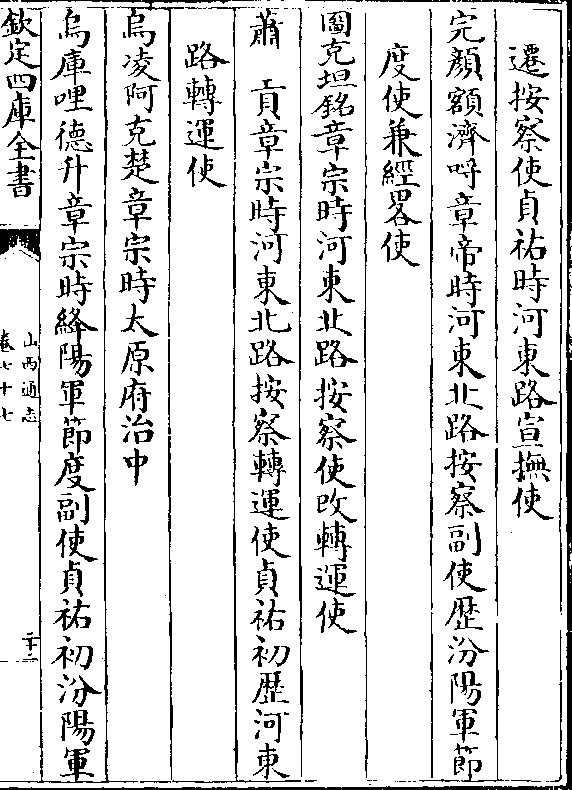 遷按察使貞祐時河東路宣撫使
完顔額濟呼章帝時河東北路按察副使歴汾陽軍節
度使兼經畧使
圖克坦銘章宗時河東北路按察使改轉運使
蕭貢章宗時河東北路按察轉運使貞祐初歴河東
路轉運使
烏凌阿克楚章宗時太原府治中
烏庫哩德升章宗時絳陽軍節度副使貞祐初汾陽軍
欽定四庫全書
山西通志
卷七十七
二十二